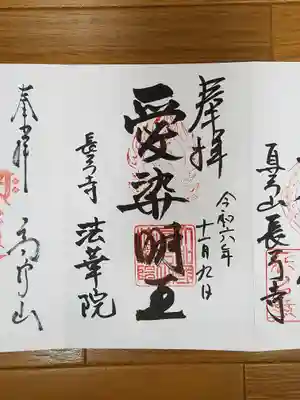 真弓山長弓寺
奉拝
令和六年
十一月九日
愛染明王
長弓寺
法華院
奉拝